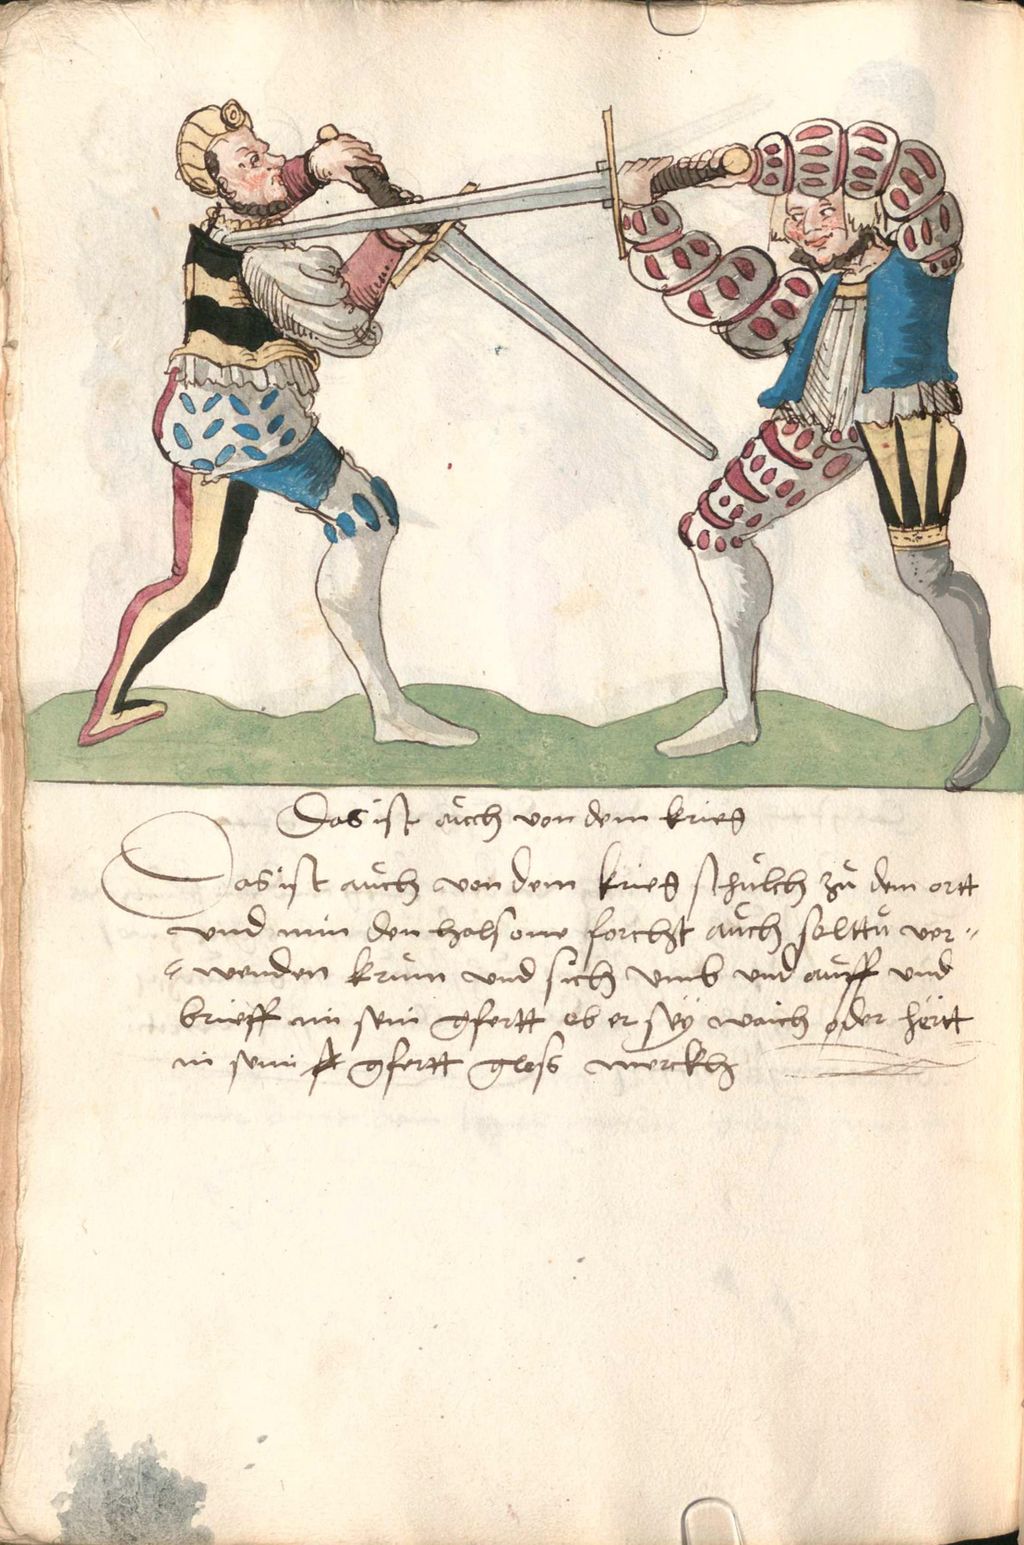 Das ist auch von dem krieg
Das ist auch von dem krieg schilch zu dem ortt
und nim den hals one forcht auch soltu ver-
wenden krum und sich umb und auff und
brieff in sein gfertt ob er sey waich oder hertt
in seim gfertt gloss merckh